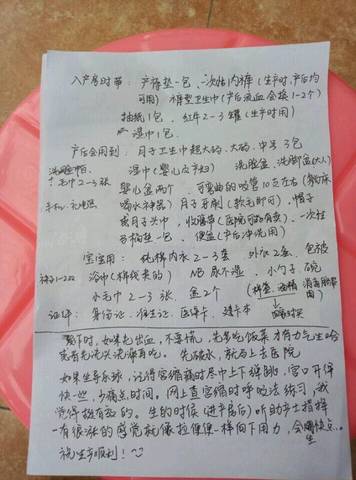 入产房时带：产褥垫一包、一次性内裤(生产时，产后均
可用) 裤型卫生巾(产后液血会换1-2个)
抽纸1包、红牛2-3罐(生产时用)
湿巾1包
产后会用到：月子卫生巾超大码、大码、中号3包
洗脸巾
毛巾2-3张
湿巾(婴儿产妇) 洗脸盆、洗脚盆(大人)
婴儿盆两个、可弯曲的吸管10支左右
喝水神器) 月子牙刷(软毛即可)、帽子
或月子头巾、收腹带(医院可购买)、一次性
马桶垫一包、便盆(产后冲洗用)
宝宝用：纯棉内衣2-3套 外衣2套、包被
袜子1-2双 浴巾(棉纱类的) NB尿不湿、小勺子 碗
小毛巾2-3张、盆2个
证件：身份证、准生证、医保卡、建卡本
时，如果见出血，不要慌，先去吃饭菜才有力气生哈
先有先洗头洗澡再吃。先破水，就马上去医院
如果坐导乐球，记得宫缩痛时尽中上下得蹦，宫口开得
快一些，少痛点时间。网上查宫缩时呼吸法练习，我
觉得挺有用的。生的时候(进产房后)听助产士指挥
有很涨的感觉就像拉便便一样向下用力，会快点
生
祝生产顺利！